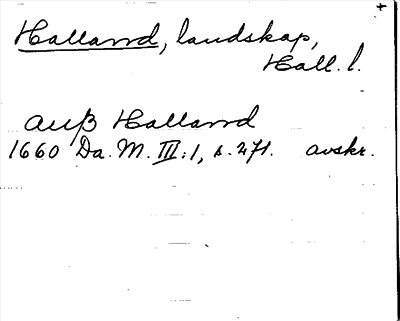 Halland, landskap,
Hall. l.
auß Halland
1660 Da. M. III:1, s. 271. avskr.